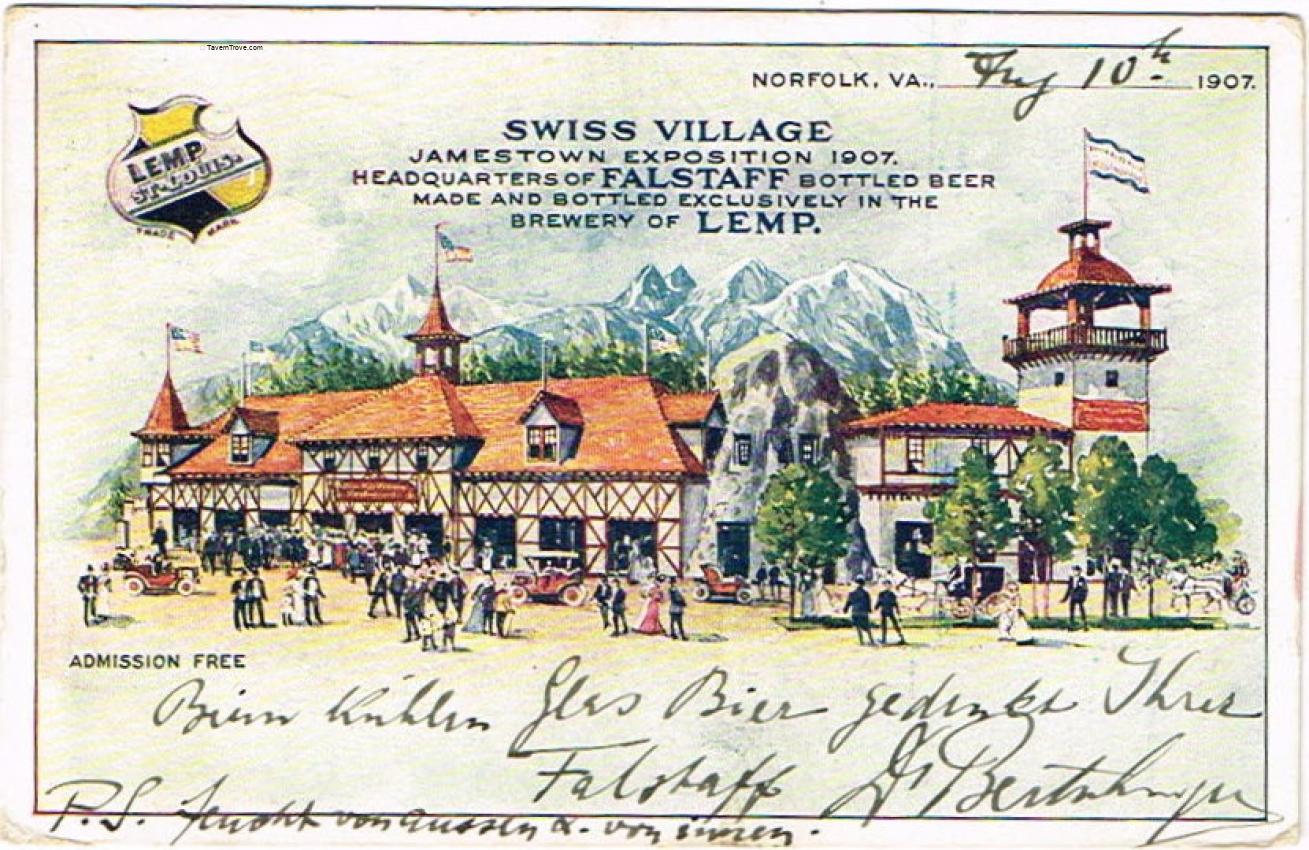 TavernTrove.com
NORFOLK, VA., Aug 10th 1907.
LEMP
ST. LOUIS.
TRADE MARK
SWISS VILLAGE
JAMESTOWN EXPOSITION 1907.
HEADQUARTERS OF FALSTAFF BOTTLED BEER
MADE AND BOTTLED EXCLUSIVELY IN THE
BREWERY OF LEMP.
ADMISSION FREE
Beim kühlen Glas Bier gedenkt Ihrer
Falstaff Dr
P.S. feucht von aussen & von innen.